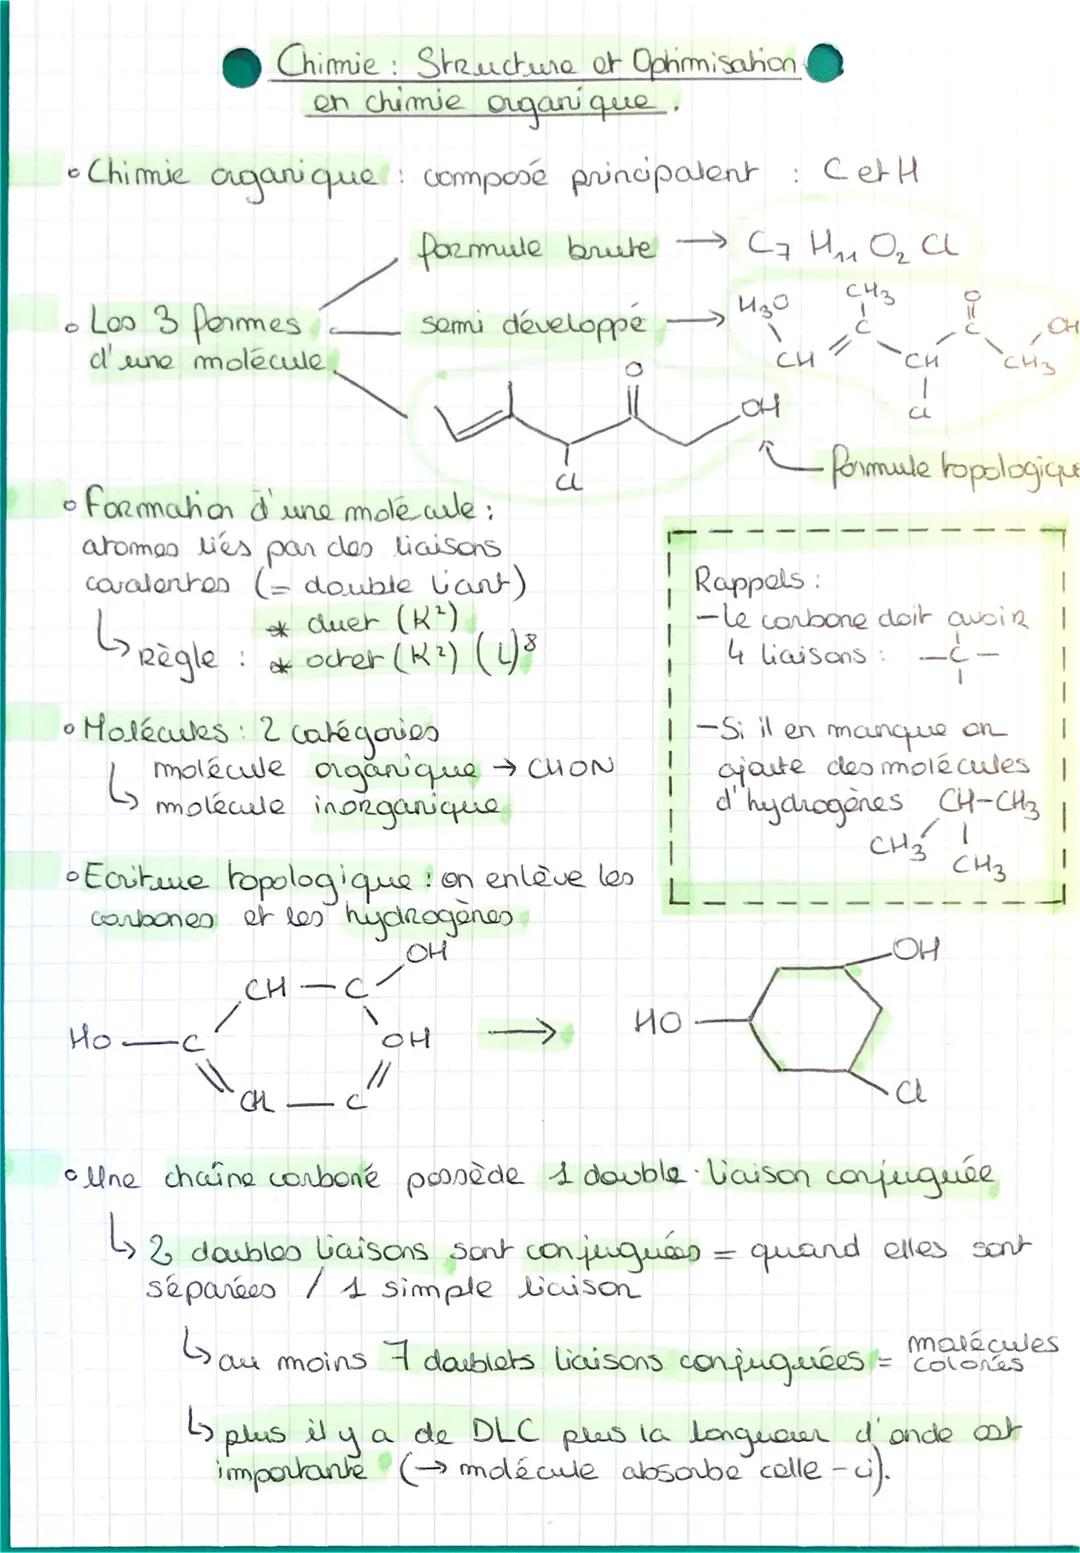 Chimie : Structure et Ophimisation
en chimie organique.
Chimie organique : composé principalent : C et H
formule brute → C7 H11 O2 Cl
Les 3 formes
d'une molécule
semi développé →
H3O
CH
CH3
C
CH
Cl
O
C
CH3
OH
O
OH
Cl
formule topologique
Formation d'une molécule :
atomes liés par des liaisons
covalentes (= double liant)
↳ Règle :
* duet (K²)
* octet (K²) (L)8
Rappels :
- Le carbone doit avoir
4 liaisons : -C-
- Si il en manque on
ajoute des molécules
d'hydrogènes CH-CH3
CH3 CH3
Molécules : 2 catégories
molécule organique → CHON
↳ molécule inorganique
Ecriture topologique : on enlève les
carbones et les hydrogènes
OH
CH - C
HO - C
OH
CH - C
→
OH
HO
Cl
Une chaîne carboné possède 1 double liaison conjuguée
↳ 2 doubles liaisons sont conjuguées = quand elles sont
séparées / 1 simple liaison
↳ au moins 7 doublets liaisons conjuguées = molécules colorés
↳ plus il y a de DLC plus la longueur d'onde est
importante (→ molécule absorbe celle-ci).